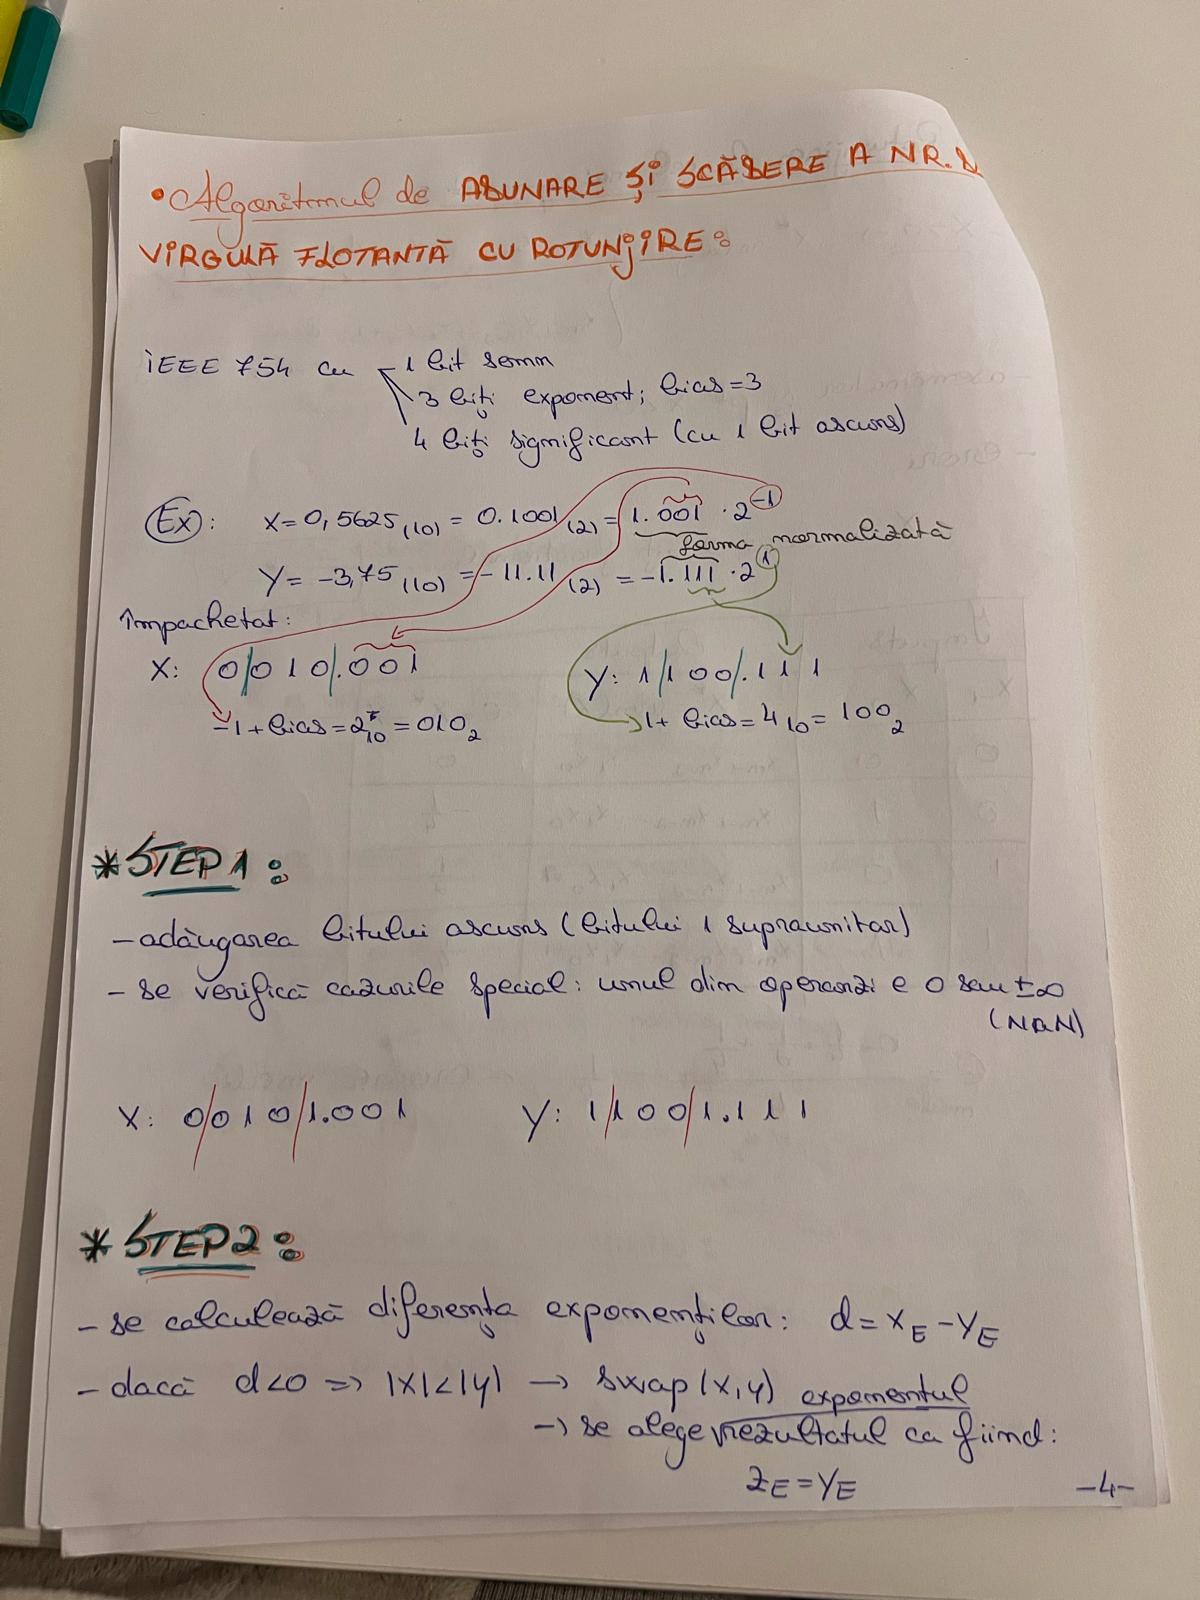 • Algoritmul de ADUNARE ŞI SCĂDERE A NR.
VIRGULĂ FLOTANTĂ CU ROTUNJIRE:
IEEE 754 cu – 1 bit semn
3 biţi exponent; bias=3
4 biţi significant (cu 1 bit ascuns)
Ex: X= 0,5625(10) = 0.1001(2) = 1.001 · 2^-1
forma normalizată
Y= -3,75(10) = -11.11(2) = -1.111 · 2^1
Împachetat:
X: 0/010/.001 Y: 1/100/.111
-1+bias=2_10=010_2 1+ bias=4_10=100_2
* STEP 1:
- adăugarea bitului ascuns (bitului 1 supraunitar)
- se verifică cazurile special: unul din operanzi e 0 sau ±∞
(NaN)
X: 0/010/1.001 Y: 1/100/1.111
* STEP 2:
- se calculează diferenţa exponenţilor: d= X_E - Y_E
- dacă d<0 => |X|<|Y| → swap(X,Y)
→ se alege exponentul rezultatul ca fiind:
Z_E = Y_E
-4-